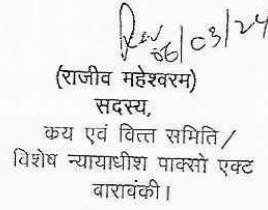 06/03/24
(राजीव महेश्वरम)
सदस्य,
कय एवं वित्त समिति/
विशेष न्यायाधीश पाक्सो एक्ट
बाराबंकी।